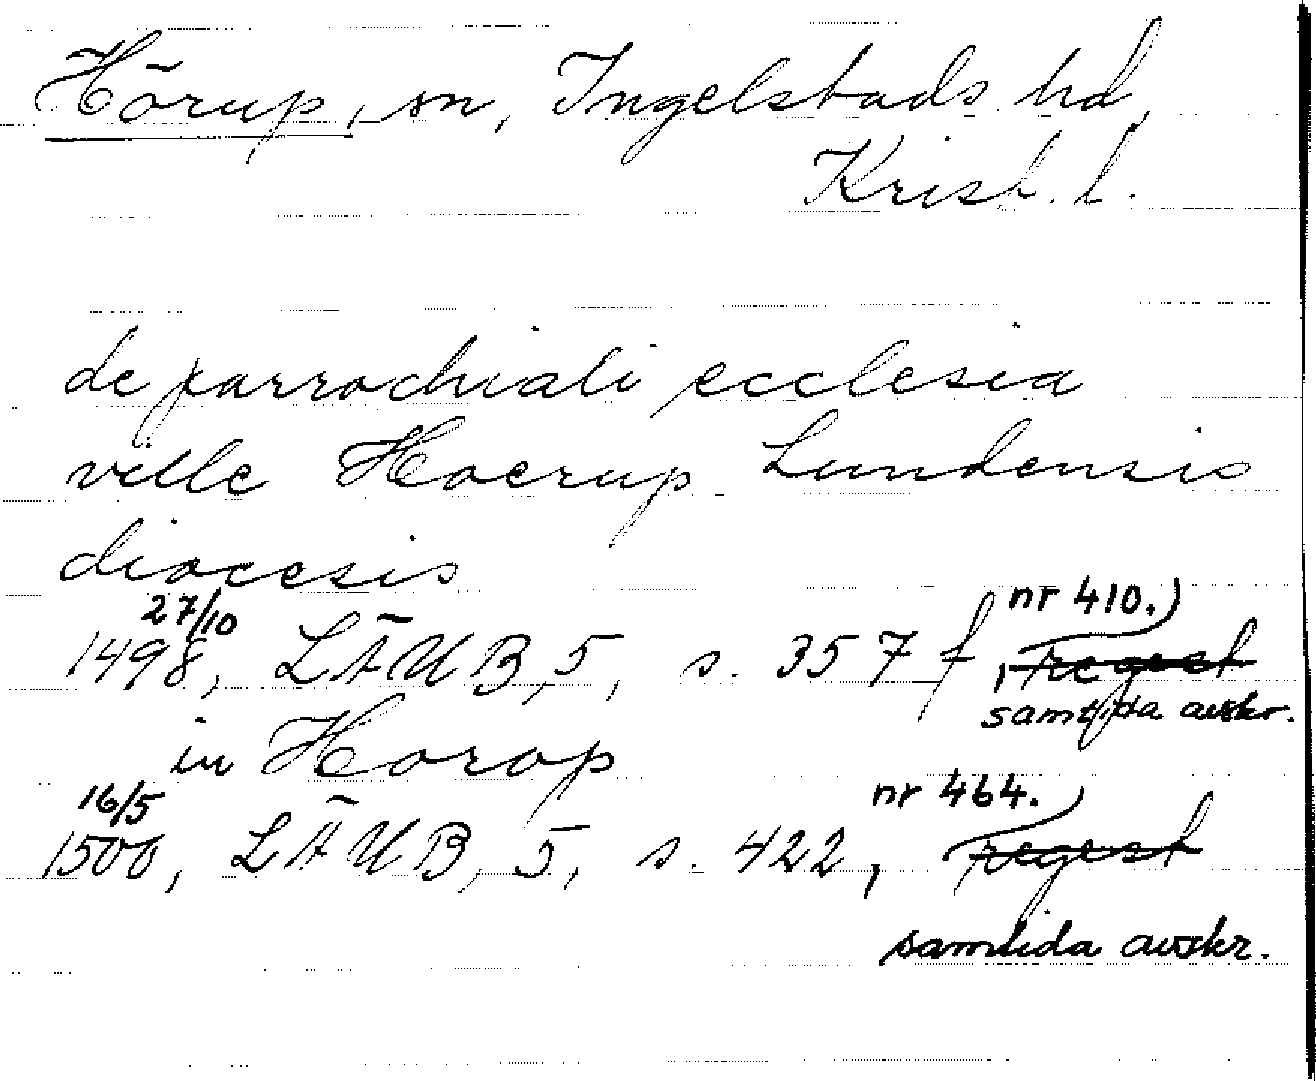 Hörup, sn, Ingelstads hd,
Krist. l.
de parrochiali ecclesia
ville Hoerup Lundensis
diocesis
27/10 nr 410.)
1498, LÄUB, 5, s. 357 f, regest
samtida avskr.
in Horop
16/5 nr 464.)
1500, LÄUB, 5, s. 422, regest
samtida avskr.